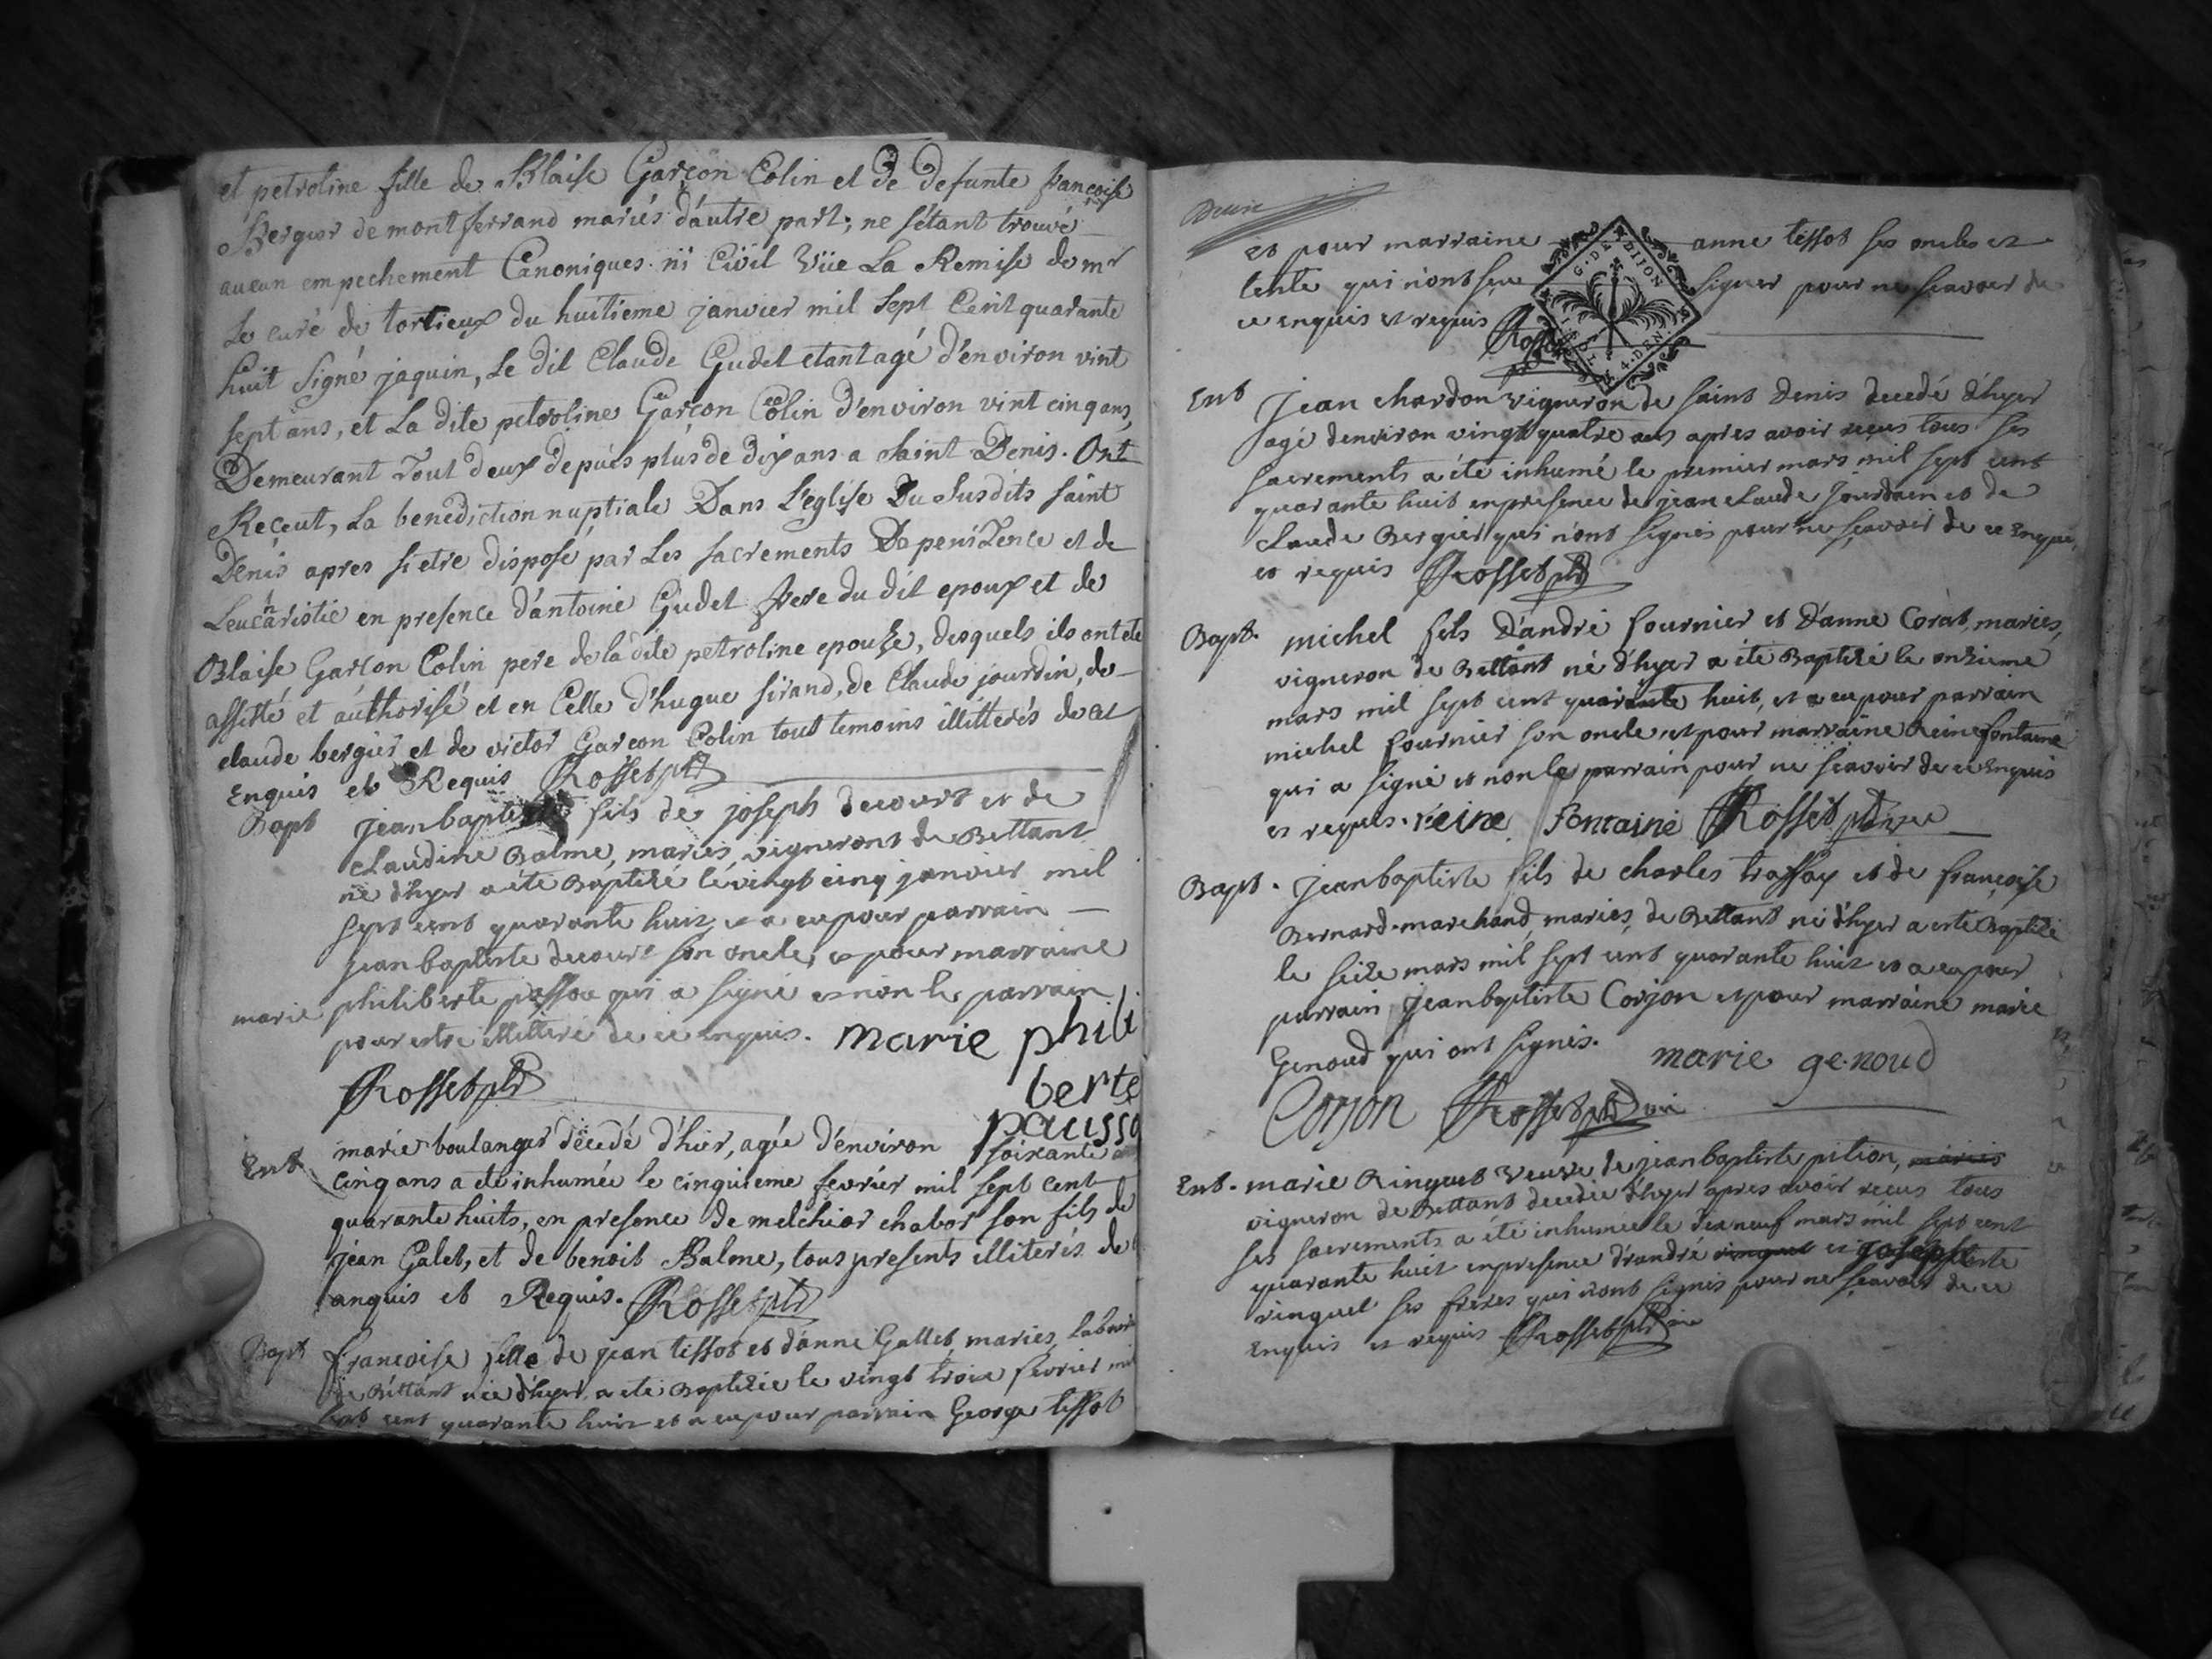 et petroline fille de Blaise Garçon Colin et de defunte françoise
Bergier de montferrand mariés d'autre part; ne s'étant trouvé
aucun empechement Canoniques ni Civil Vüe La Remise de mr
Le curé de tortieux du huitieme janvier mil sept Cent quarante
huit signé jaquin, Le dit Claude Gudet etant agé d'environ vint
sept ans, et La dite petroline Garçon Colin d'environ vint cinq ans,
Demeurant Tout deux depuis plus de dix ans a Saint Denis. Ont
Reçeut, La benediction nuptiale Dans L'eglise Du Susdits saint
Denis apres s'etre disposé par Les sacrements De peniTence et de
Leucharistie en presence d'antoine Gudet frere du dit epoux et de
Blaise Garçon Colin pere de la dite petroline epouse, desquels ils ont eté
assisté et authorisé et en Celle d'hugue sirand, de Claude jourdin, de
claude bergier et de victor Garcon Colin tout temoins illitterés de ce
Enquis et Requis Rosset ptr
Bapt jean baptiste fils de joseph decourt et de
claudine Balme, mariés, vignerons de Bettant
né d'hyer a été Baptizé le vingt cinq janvier mil
sept cent quarante huit et a eu pour parrain
jean baptiste decourt son oncle, et pour marraine
marie philiberte passou qui a signé et non le parrain
pour estre illitteré de ce enquis. marie phili
berte
Rosset ptr
pausso
Ent marie boulanger décedé d'hier, agée d'environ soixante
cinq ans a été inhumée le cinquieme fevrier mil sept cent
quarante huits, en presence de melchior chabot son fils de
jean Galet, et de benoit Balme, tous presents illiterés de
anquis et Requis. Rosset ptr
Bapt francoise fille de jean tissot et d'anne Gallet, mariés,
de Bettant née d'hyer a eté Baptizée le vingt trois fevrier mil
sept cent quarante huit et a eu pour parrain George tissot
et pour marraine anne tissot ses oncles et
tente qui n'ont sçeu signer pour ne sçavoir de
ce enquis et requis Rosset
G. DE DIJON
4. DEN.
Ent Jean chardon vigneron de saint Denis decedé d'hyer
agé d'environ vingt quatre ans apres avoir reçus tous ses
sacrements a été inhumé le premier mars mil sept cent
quarante huit en presence de jean claude Jourdain et de
claude Bergier qui n'ont signés pour ne sçavoir de ce Enquis
et requis Rosset ptr
Bapt. michel fils d'andré fournier et d'anne Corat, mariés,
vigneron de Bettant né d'hyer a été Baptizé le onzieme
mars mil sept cent quarante huit, et a eu pour parrain
michel fournier son oncle et pour marraine Reine fontaine
qui a signé et non le parrain pour ne sçavoir de ce Enquis
et requis. reine fontaine Rosset ptr
Bapt. jean baptiste fils de charles traffay et de françoise
Bernard marchand, mariés, de Bettant né d'hyer a esté Baptizé
le seize mars mil sept cent quarante huit et a eu pour
parrain jean baptiste Corjon et pour marraine marie
Genoud qui ont signés. marie genoud
Corjon Rosset ptr
Ent. marie Ringuet Veuve de jean baptiste pition, mariés
vigneron de Bettant decedée d'hyer apres avoir recus tous
ses sacrements a été inhumée le dix neuf mars mil sept cent
quarante huit en presence d'andré ringuet et
ringuet ses freres qui n'ont signés pour ne sçavoir de ce
Enquis et requis Rosset ptr